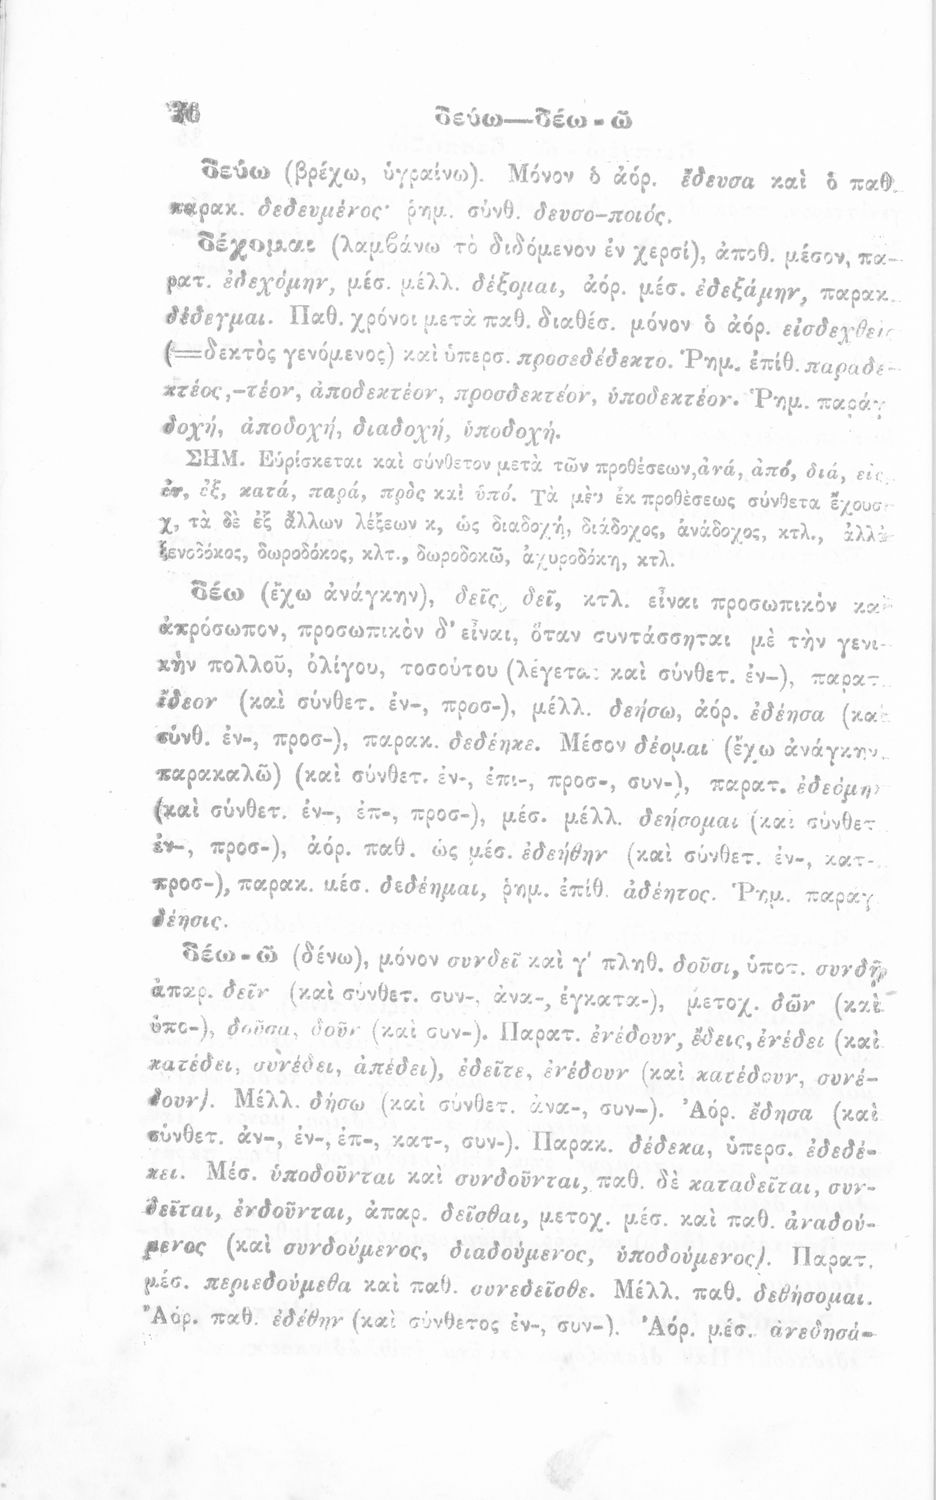 36 δεύω—δέω-ῶ
δεύω (βρέχω, ὑγραίνω). Μόνον ὁ ἀόρ. ἔδευσα καὶ ὁ παθ.
παρακ. δεδευμένος· ῥημ. σύνθ. δευσο-ποιός.
δέχομαι (λαμβάνω τὸ διδόμενον ἐν χερσί), ἀποθ. μέσον, πα-
ρατ. ἐδεχόμην, μέσ. μέλλ. δέξομαι, ἀόρ. μέσ. ἐδεξάμην, παρακ.
δέδεγμαι. Παθ. χρόνοι μετὰ παθ. διαθέσ. μόνον ὁ ἀόρ. εἰσδεχθεὶς
(=δεκτὸς γενόμενος) καὶ ὑπερσ. προσεδέδεκτο. Ῥημ. ἐπίθ. παραδε-
κτέος,-τέον, ἀποδεκτέον, προσδεκτέον, ὑποδεκτέον. Ῥημ. παράγ
δοχή, ἀποδοχή, διαδοχή, ὑποδοχή.
ΣΗΜ. Εὑρίσκεται καὶ σύνθετον μετὰ τῶν προθέσεων, ἀνά, ἀπό, διά, εἰς,
ἐν, ἐξ, κατά, παρά, πρὸς καὶ ὑπό. Τὰ μὲν ἐκ προθέσεως σύνθετα ἔχουσι
χ, τὰ δὲ ἐξ ἄλλων λέξεων κ, ὡς διαδοχή, διάδοχος, ἀνάδοχος, κτλ., ἀλλὰ
ξενοδόκος, δωροδόκος, κλτ., δωροδοκῶ, ἀχυροδόκη, κτλ.
δέω (ἔχω ἀνάγκην), δεῖς, δεῖ, κτλ. εἶναι προσωπικὸν καὶ
ἀπρόσωπον, προσωπικὸν δ' εἶναι, ὅταν συντάσσηται μὲ τὴν γενι-
κὴν πολλοῦ, ὀλίγου, τοσούτου (λέγεται καὶ σύνθετ. ἐν-), παρατ.
ἔδεον (καὶ σύνθετ. ἐν-, προσ-), μέλλ. δεήσω, ἀόρ. ἐδέησα (καὶ
σύνθ. ἐν-, προσ-), παρακ. δεδέηκε. Μέσον δέομαι (ἔχω ἀνάγκην,
παρακαλῶ) (καὶ σύνθετ. ἐν-, ἐπι-, προσ-, συν-), παρατ. ἐδεόμην
(καὶ σύνθετ. ἐν-, ἐπ-, προσ-), μέσ. μέλλ. δεήσομαι (καὶ σύνθετ
ἐν-, προσ-), ἀόρ. παθ. ὡς μέσ. ἐδεήθην (καὶ σύνθετ. ἐν-, κατ-,
προσ-), παρακ. μέσ. δεδέημαι, ῥημ. ἐπίθ. ἀδέητος. Ῥημ. παραγ
δέησις.
δέω-ῶ (δένω), μόνον συνδεῖ καὶ γ' πληθ. δοῦσι, ὑποτ. συνδῇ
ἀπαρ. δεῖν (καὶ σύνθετ. συν-, ἀνα-, ἐγκατα-), μετοχ. δῶν (καὶ
ὑπο-), δοῦσα, δοῦν (καὶ συν-). Παρατ. ἐνέδουν, ἔδεις, ἐνέδει (καὶ
κατέδει, συνέδει, ἀπέδει), ἐδεῖτε, ἐνέδουν (καὶ κατέδουν, συνέ-
δουν). Μέλλ. δήσω (καὶ σύνθετ. ἀνα-, συν-). Ἀόρ. ἔδησα (καὶ
σύνθετ. ἀν-, ἐν-, ἐπ-, κατ-, συν-). Παρακ. δέδεκα, ὑπερσ. ἐδεδέ-
κει. Μέσ. ὑποδοῦνται καὶ συνδοῦνται, παθ. δὲ καταδεῖται, συν-
δεῖται, ἐνδοῦνται, ἀπαρ. δεῖσθαι, μετοχ. μέσ. καὶ παθ. ἀναδού-
μενος (καὶ συνδούμενος, διαδούμενος, ὑποδούμενος). Παρατ.
μέσ. περιεδούμεθα καὶ παθ. συνεδεῖσθε. Μέλλ. παθ. δεθήσομαι.
Ἀόρ. παθ. ἐδέθην (καὶ σύνθετος ἐν-, συν-). Ἀόρ. μέσ. ἀνεδησά-